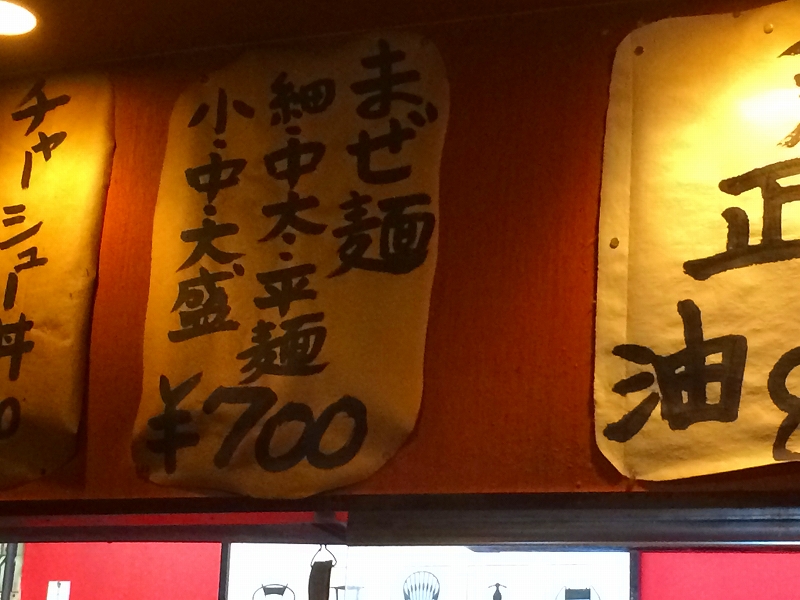 まぜ麺
細・中太・平麺
小・中・大盛
¥700
正
油
チャーシュー丼